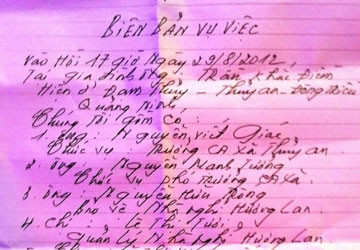 BIÊN BẢN VỤ VIỆC
Vào Hồi 17 giờ Ngày 29/8/2012,
Tại gia đình ông, Trần Khải Điềm
Hiện ở Đạm Thủy - Thủy An - Đông Triều
Quảng Ninh,
Chúng tôi gồm có:
1. Ông: Nguyễn Viết Giác
Chức vụ: Trưởng CA Xã Thủy An
2. Ông: Nguyễn Mạnh Tường
Chức vụ Phó Trưởng CA Xã.
3. Ông: Nguyễn Hữu
Bảo vệ Nhà nghỉ Hương Lan.
4. Chị: Lê Thị Tươi
Quản Lý Nhà nghỉ Hương Lan